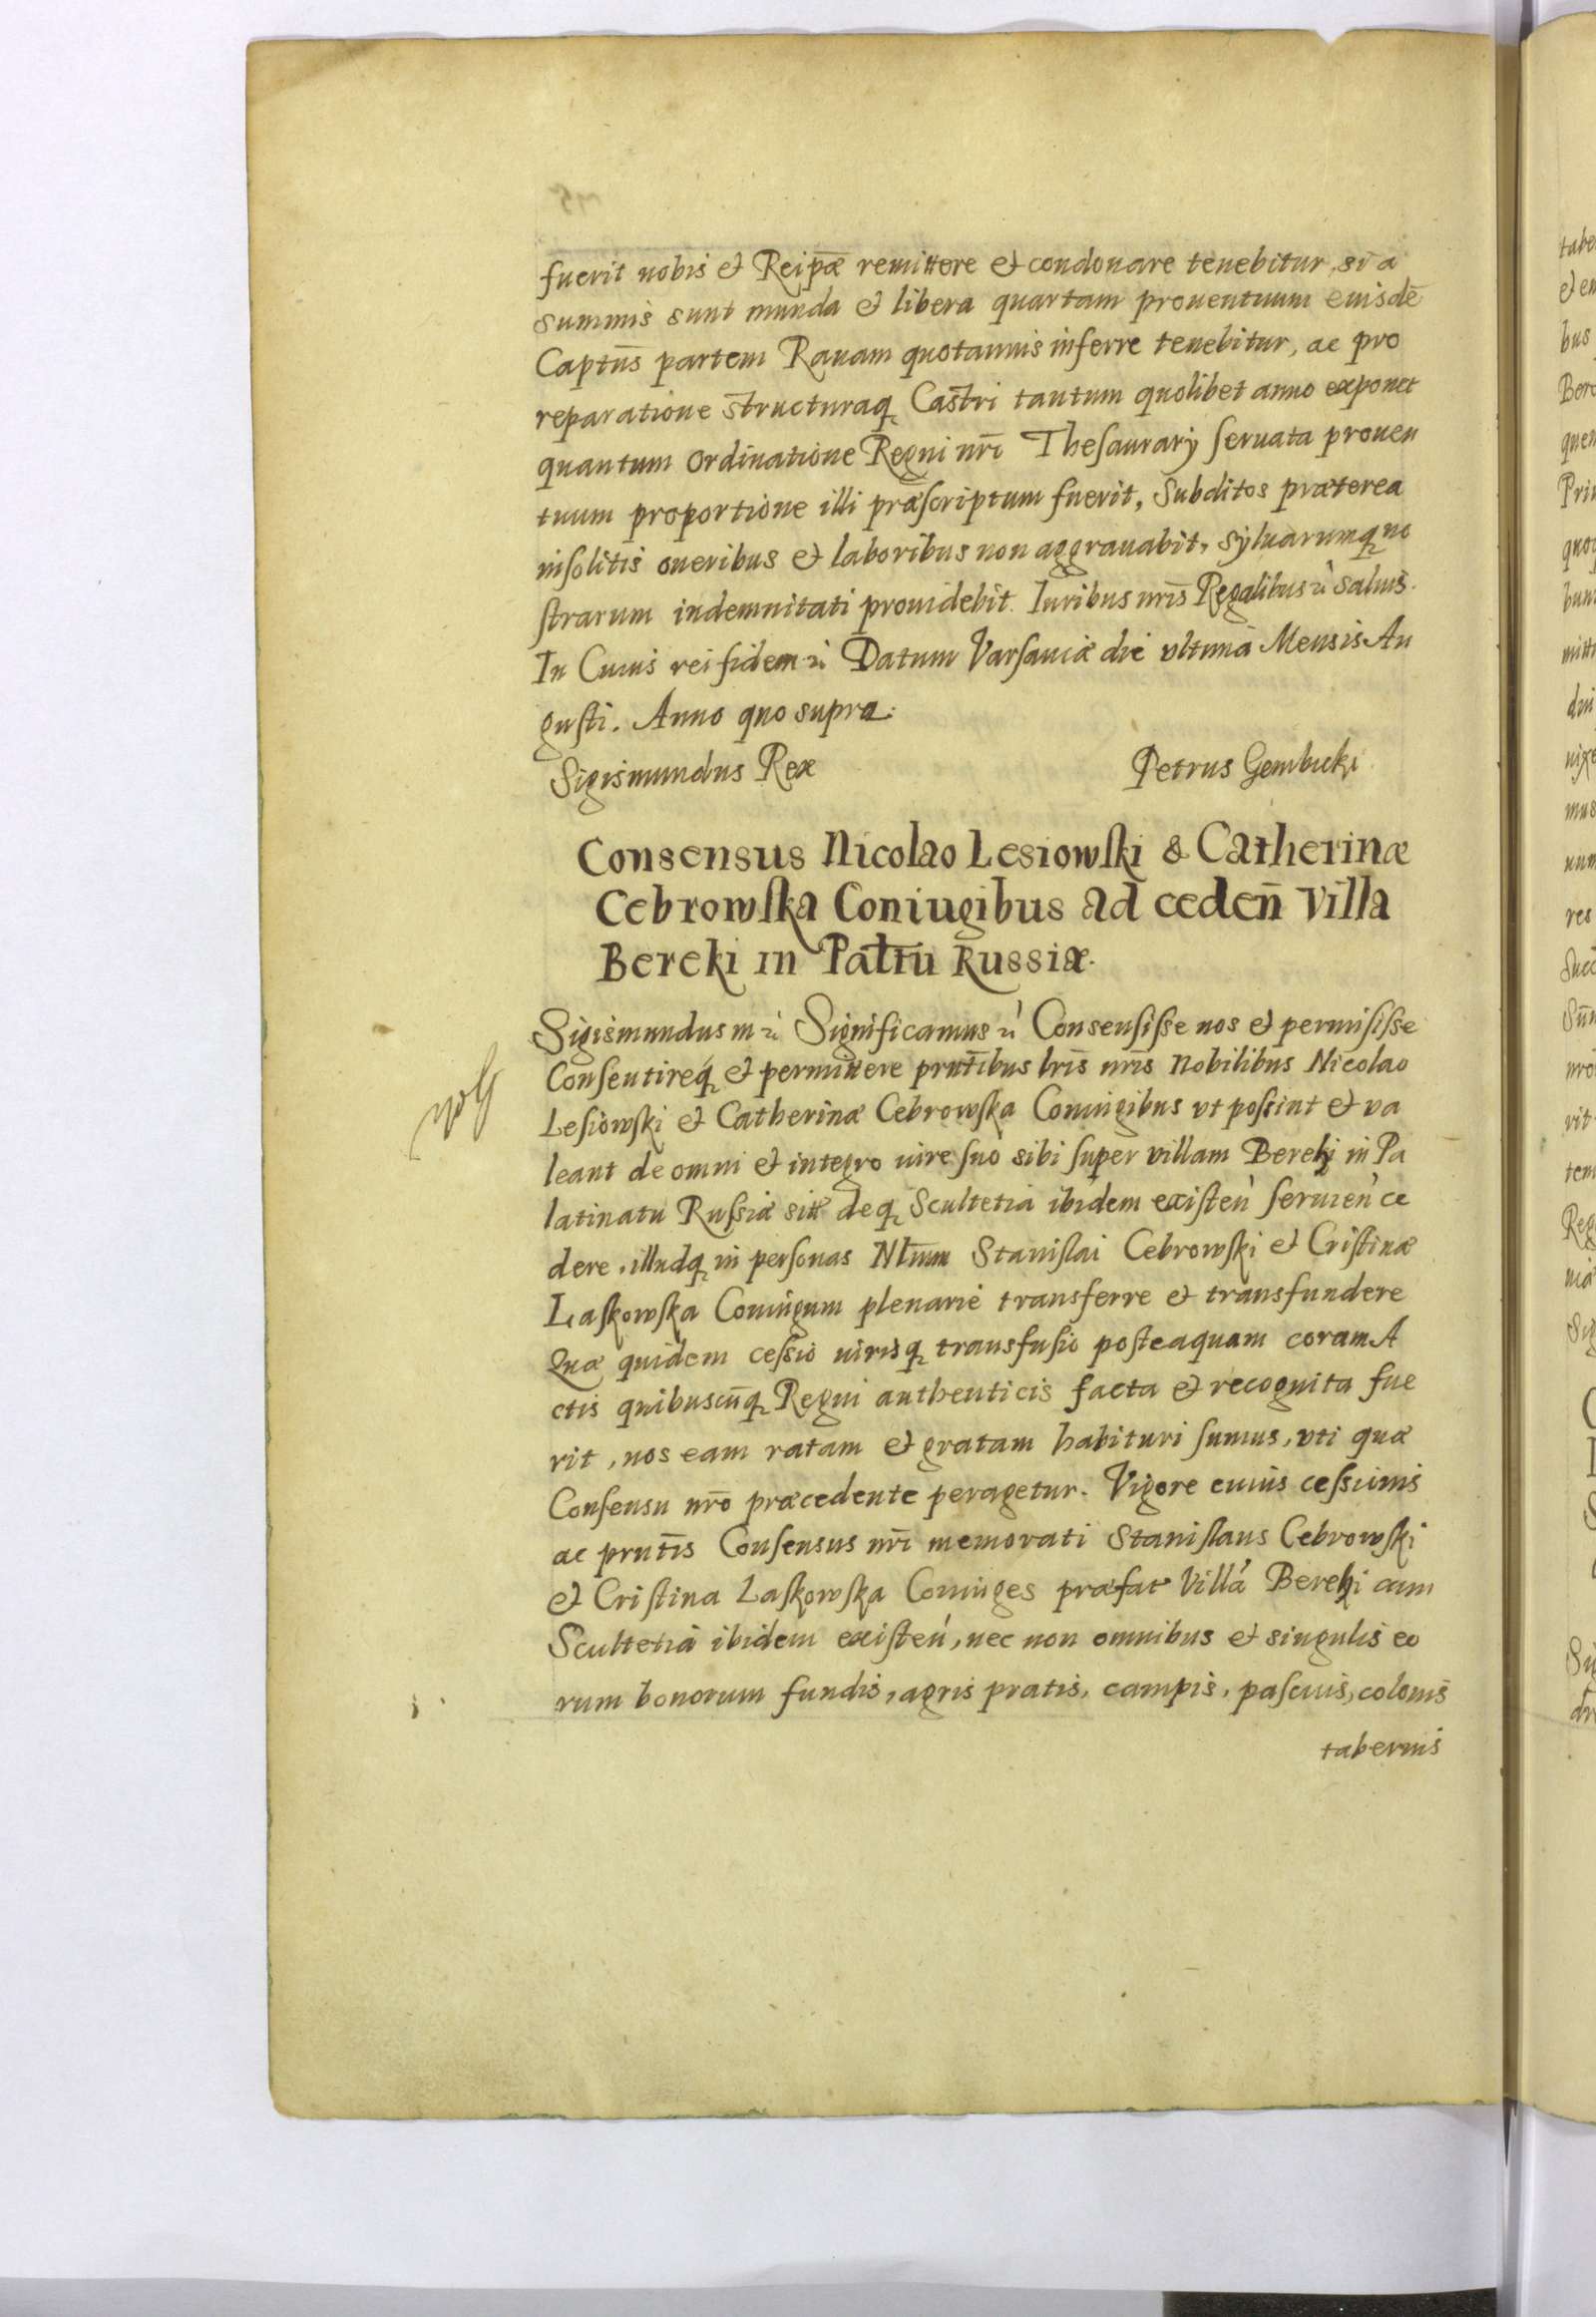 fuerit nobis et Reipæ remittere et condonare tenebitur, si a
summis sunt munda et libera quartam prouentuum euisdē
Captūs partem Rauam quotannis inferre tenebitur, ac pro
reparatione structuraq Castri tantum quolibet anno exponet
quantum Ordinatione Regni nrī Thesaurarÿ seruata prouen
tuum proportione illi præscriptum fuerit, Subditos præterea
insolitis oneribus et laboribus non aggrauabit, Syluarumq no
strarum indemnitati prouidebit. Iuribus nrīs Regalibus saluis.
In Cuius rei fidem Datum Varsauiæ die vltima Mensis Au
gusti. Anno quo supra.
Sigismundus Rex Petrus Gembicki
Consensus Nicolao Lesiowski & Catherinæ
Cebrowska Coniugibus ad ceden̄ Villa
Bereki in Palt̄u Russiæ.
Sigismundus III Significamus Consensisse nos et permisisse
Consentireq et permittere prntībus lrīs nrīs Nobilibus Nicolao
Lesiowski et Catherinæ Cebrowska Coniugibus vt possint et va
leant de omni et integro iure suo sibi super villam Bereki in Pa
latinatu Russiæ sitt deq Scultetia ibidem existen seruien ce
dere, illudq in personas Nllum Stanislai Cebrowski et Cristinæ
Laskowska Coniugum plenarie transferre et transfundere
Quæ quidem cessio iurisq transfusio posteaquam coram A
ctis quibuscūq Regni authenticis facta et recognita fue
rit, nos eam ratam et gratam habituri sumus, vti quæ
Consensu nrō præcedente peragetur. Vigore cuius cessionis
ac prntīs Consensus nrī memorati Stanislaus Cebrowski
et Cristina Laskowska Coniuges præfat Villa Bereki cum
Scultetia ibidem existen, nec non omnibus et singulis eo
rum bonorum fundis, agris pratis, campis, pascuis, colonis
tabernis